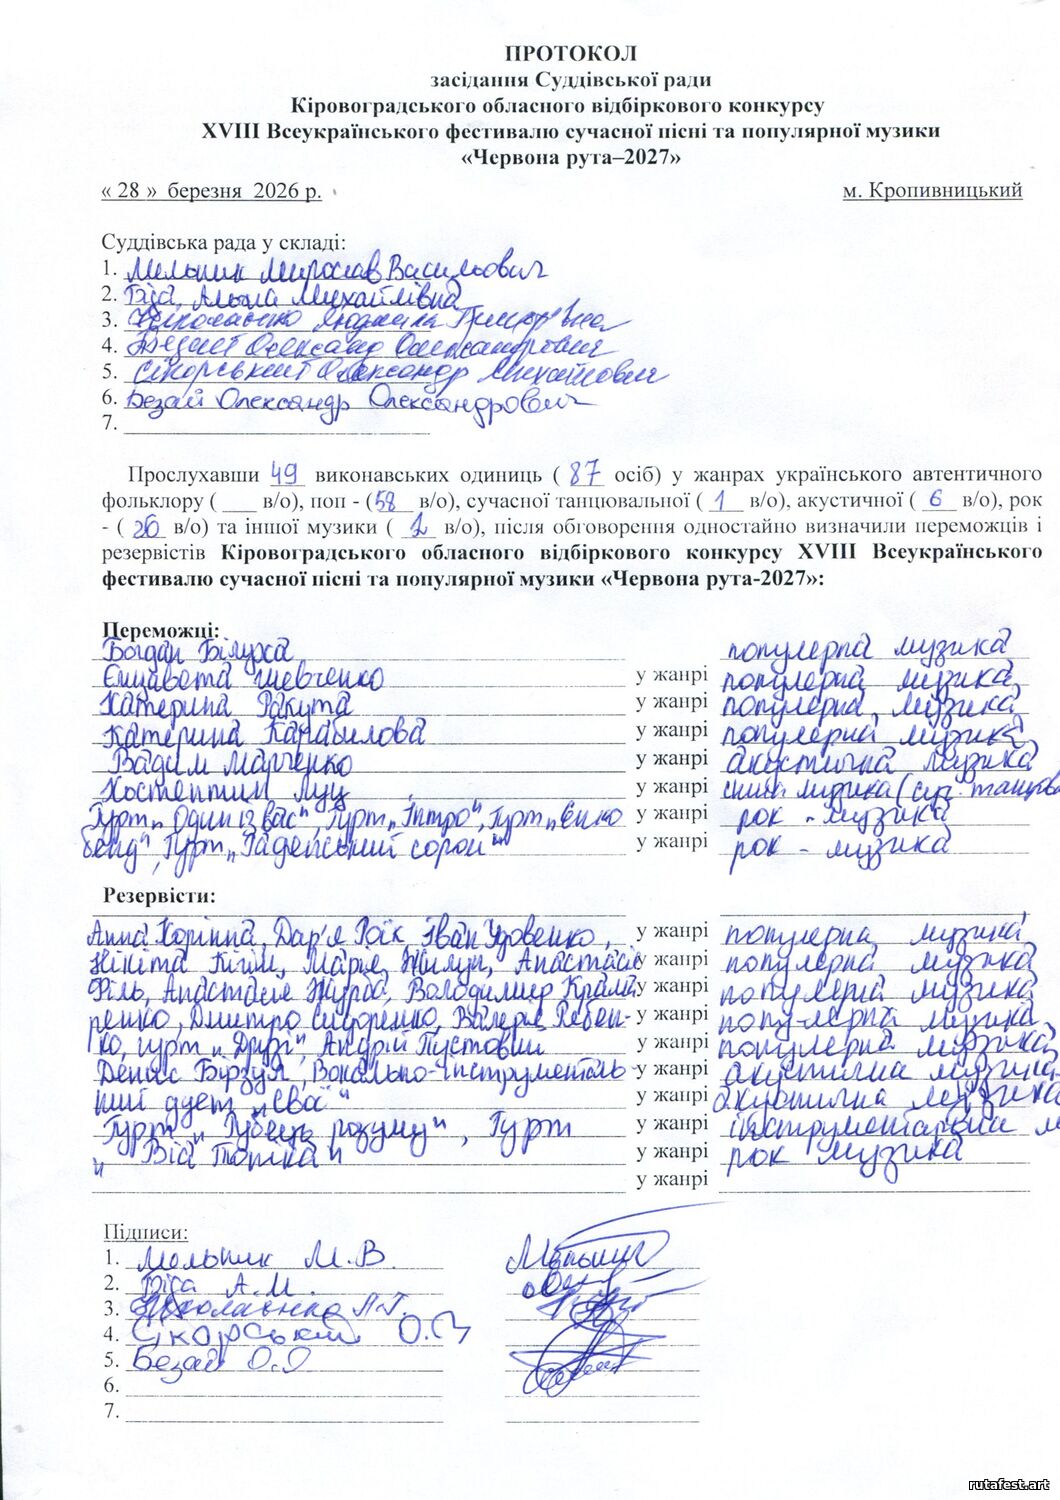 ПРОТОКОЛ
засідання Суддівської ради
Кіровоградського обласного відбіркового конкурсу
XVIII Всеукраїнського фестивалю сучасної пісні та популярної музики
«Червона рута–2027»
« 28 » березня 2026 р. м. Кропивницький
Суддівська рада у складі:
1. Мельник Мирослав Васильович
2. Біда Альона Михайлівна
3. Ніколаєнко Людмила Григорівна
4. Олександр Олександрович
5. Сікорський Олександр Михайлович
6. Безай Олександр Олександрович
7.
Прослухавши 49 виконавських одиниць ( 87 осіб) у жанрах українського автентичного
фольклору ( в/о), поп - ( в/о), сучасної танцювальної ( 1 в/о), акустичної ( 6 в/о), рок
- ( в/о) та іншої музики ( в/о), після обговорення одностайно визначили переможців і
резервістів Кіровоградського обласного відбіркового конкурсу XVIII Всеукраїнського
фестивалю сучасної пісні та популярної музики «Червона рута-2027»:
Переможці:
Богдан Білуха популярна музика
Єлизавета Шевченко у жанрі популярна музика
Катерина Ракута у жанрі популярна музика
Катерина у жанрі популярна музика
Вадим Марченко у жанрі акустична музика
Костянтин Луц у жанрі музика (суч. танцюва
Гурт „Один із вас", Гурт „Інтро", Гурт „Єнко у жанрі рок - музика
бенд", Гурт „ сорок" у жанрі рок - музика
Резервісти:
Анна Корінна, Дар'я Роїк, Іван Удовенко, у жанрі популярна музика
Нікіта Кігім, Марія Жилун, Анастасія у жанрі популярна музика
Філь, Анастасія Журба, Володимир Крама у жанрі популярна музика
ренко, Дмитро Сидоренко, Валерія Ревен- у жанрі популярна музика
ко, гурт „Друзі", Андрій Пустовий у жанрі популярна музика
Денис Бірзул, Вокально-інструменталь у жанрі акустична музика
ний дует „Свої" у жанрі акустична музика
Гурт „ розуму", Гурт у жанрі інструментальна м
„ Віа Топка" у жанрі рок музика
у жанрі
Підписи:
1. Мельник М.В.
2. Біда А.М.
3. Ніколаєнко Л.Г.
4. Сікорський О.М
5. Безай О.О
6.
7.
rutafest.art